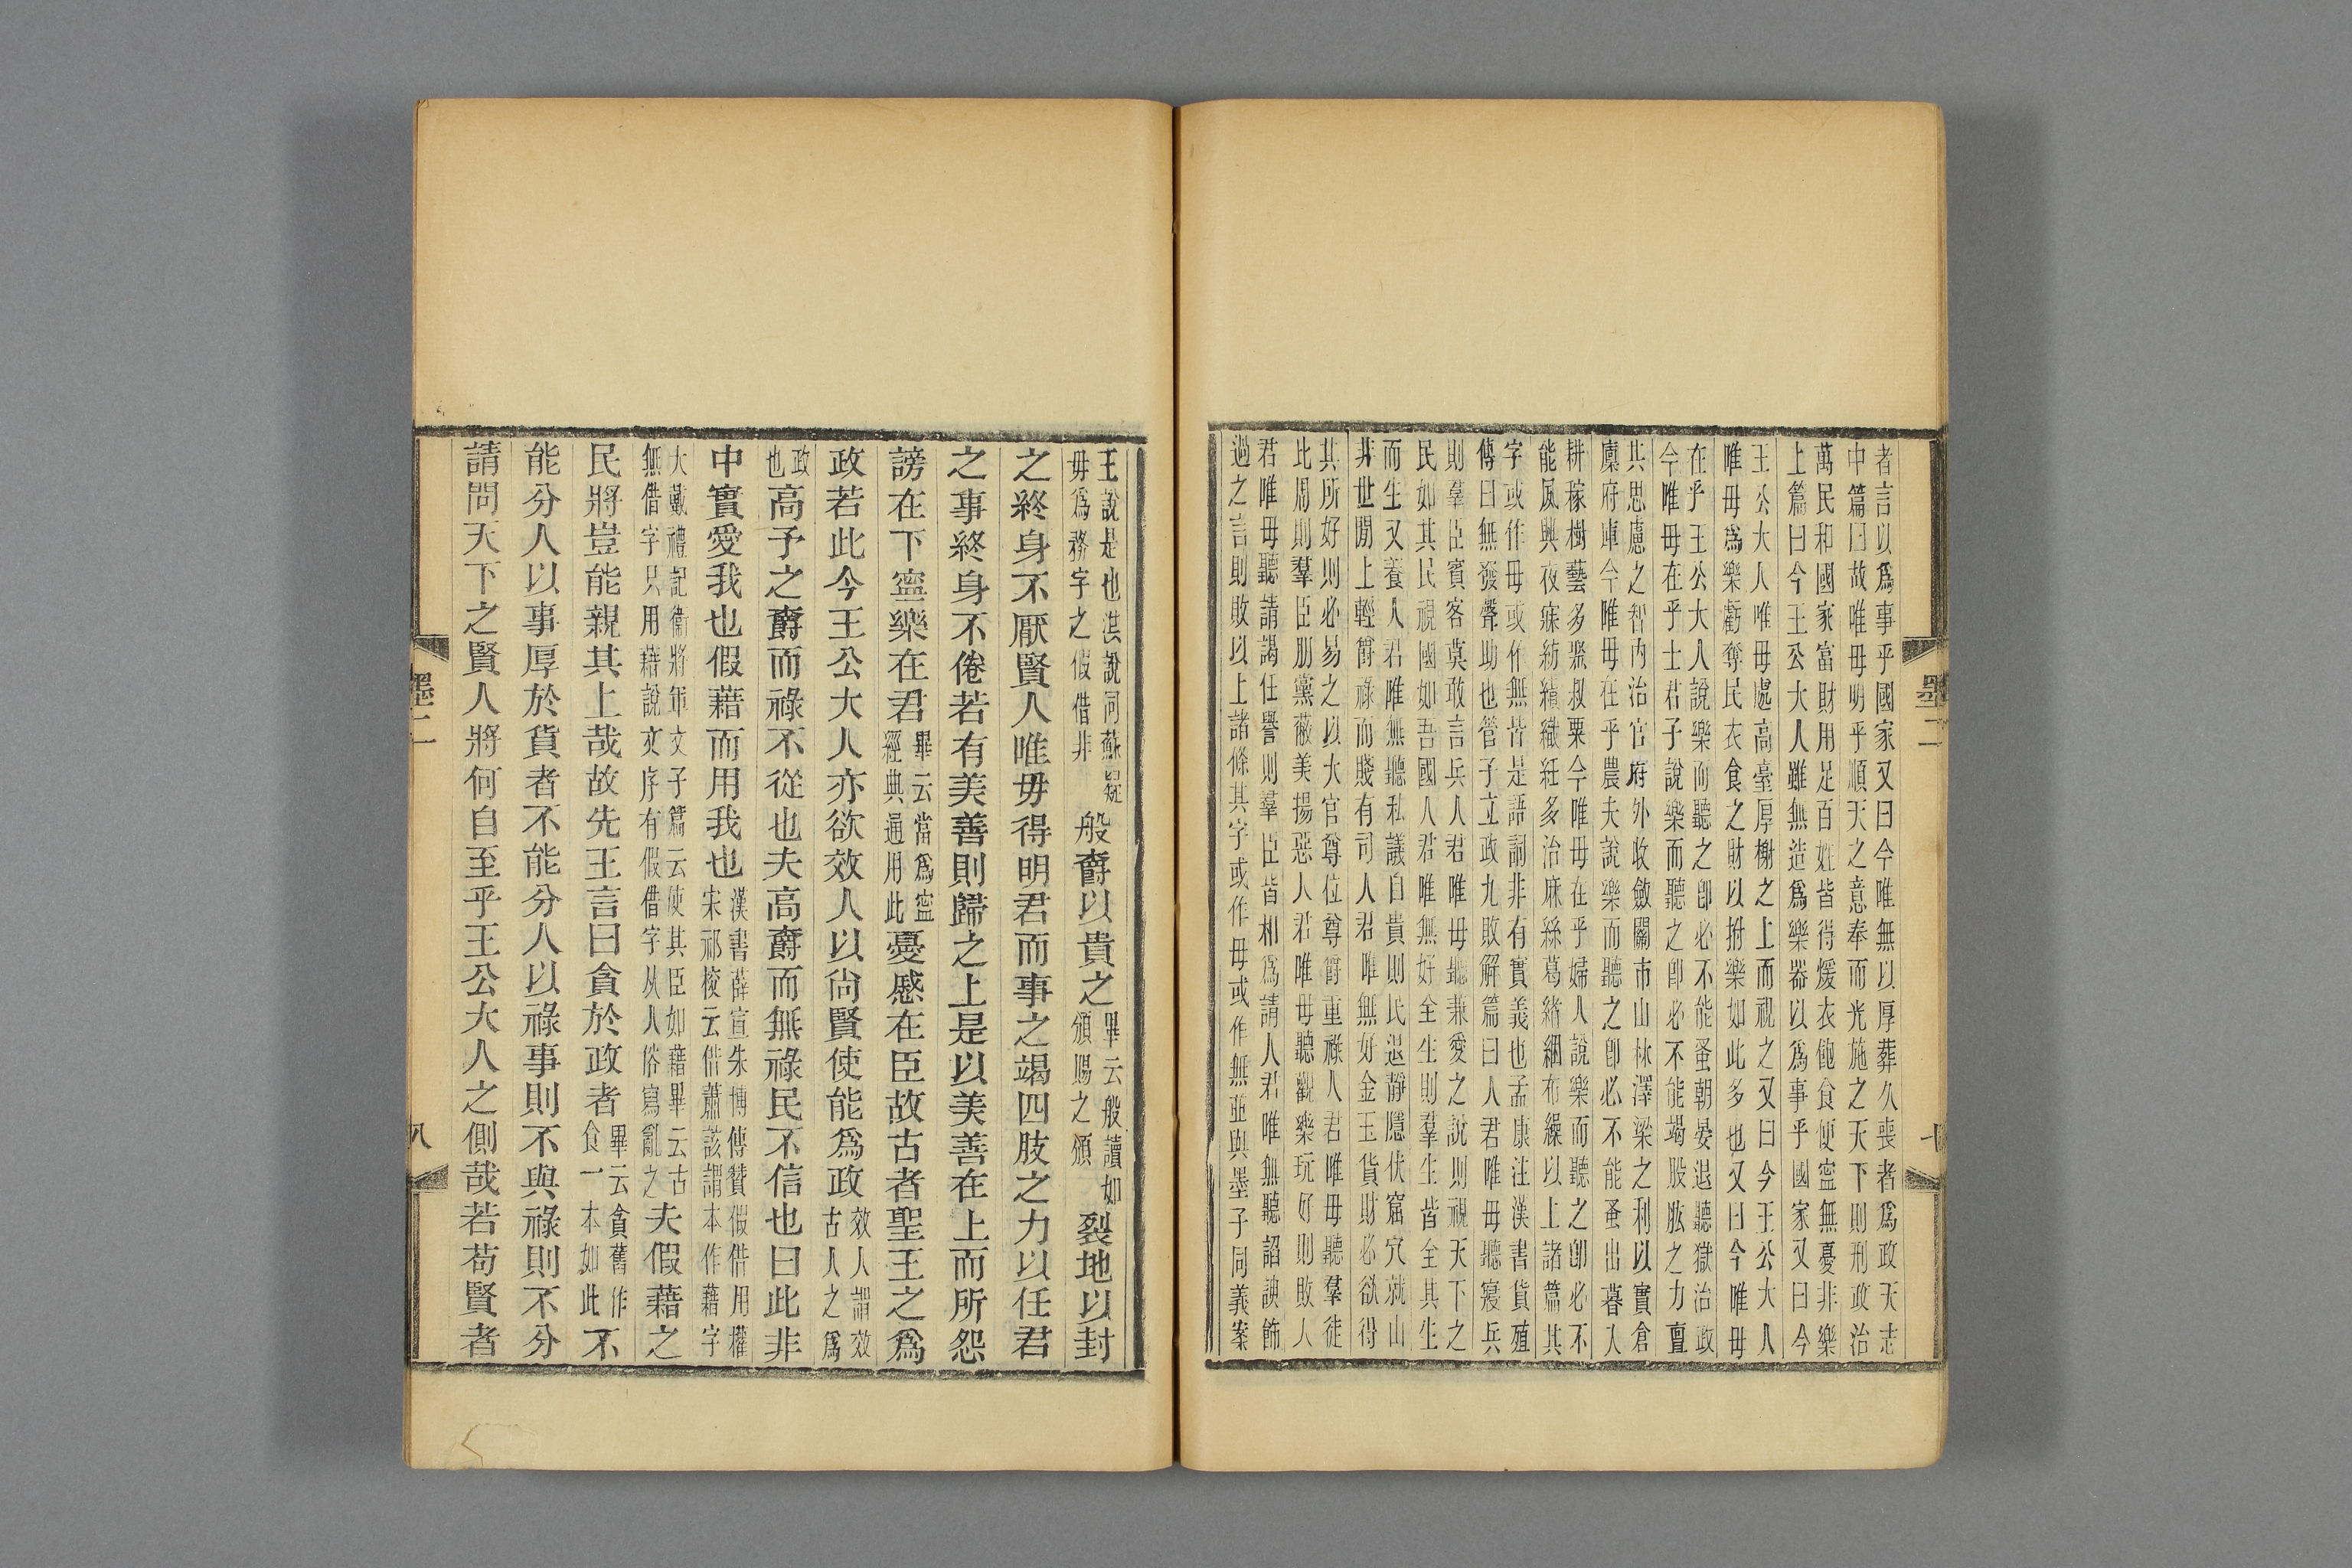 墨二
七
者言以爲事乎國家又曰今唯無以厚葬久喪者爲政天志
中篇曰故唯毋明乎順天之意奉而光施之天下則刑政治
萬民和國家富財用足百姓皆得煖衣飽食便寍無憂非樂
上篇曰今王公大人雖無造爲樂器以爲事乎國家又曰今
王公大人唯毋處高臺厚榭之上而視之又曰今王公大人
唯毋爲樂虧奪民衣食之財以拊樂如此多也又曰今唯毋
在乎王公大人說樂而聽之卽必不能蚤朝晏退聽獄治政
今唯毋在乎士君子說樂而聽之卽必不能竭股肱之力亶
其思慮之智內治官府外收斂關市山林澤梁之利以實倉
廩府庫今唯毋在乎農夫說樂而聽之卽必不能蚤出暮入
耕稼樹藝多聚叔粟今唯毋在乎婦人說樂而聽之卽必不
能夙興夜寐紡績織紝多治麻絲葛緒綑布縿以上諸篇其
字或作毋或作無皆是語詞非有實義也孟康注漢書貨殖
傳曰無發聲助也管子立政九敗解篇曰人君唯毋聽寑兵
則羣臣賓客莫敢言兵人君唯毋聽兼愛之說則視天下之
民如其民視國如吾國人君唯無好全生則羣生皆全其生
而生又養人君唯無聽私議自貴則民退靜隱伏窟穴就山
非世閒上輕爵祿而賤有司人君唯無好金玉貨財必欲得
其所好則必易之以大官尊位尊爵重祿人君唯毋聽羣徒
比周則羣臣朋黨蔽美揚惡人君唯毋聽觀樂玩好則敗人
君唯毋聽請謁任譽則羣臣皆相爲請人君唯無聽諂諛飾
過之言則敗以上諸條其字或作毋或作無並與墨子同義案
王說是也洪說同蘇疑
毋爲務字之假借非
般爵以貴之
畢云般讀如
頒賜之頒
裂地以封
之終身不厭賢人唯毋得明君而事之竭四肢之力以任君
之事終身不倦若有美善則歸之上是以美善在上而所怨
謗在下寍樂在君
畢云當爲寍
經典通用此
憂慼在臣故古者聖王之爲
政若此今王公大人亦欲效人以尙賢使能爲政
效人謂效
古人之爲
政
也
高予之爵而祿不從也夫高爵而無祿民不信也曰此非
中實愛我也假藉而用我也
漢書薛宣朱博傳贊假借用權
宋祁校云借蕭該謂本作藉字
大戴禮記衞將軍文子篇云使其臣如藉畢云古
無借字只用藉說文序有假借字从人俗寫亂之
夫假藉之
民將豈能親其上哉故先王言曰貪於政者
畢云貪舊作
食一本如此
不
能分人以事厚於貨者不能分人以祿事則不與祿則不分
請問天下之賢人將何自至乎王公大人之側哉若苟賢者
墨二
八